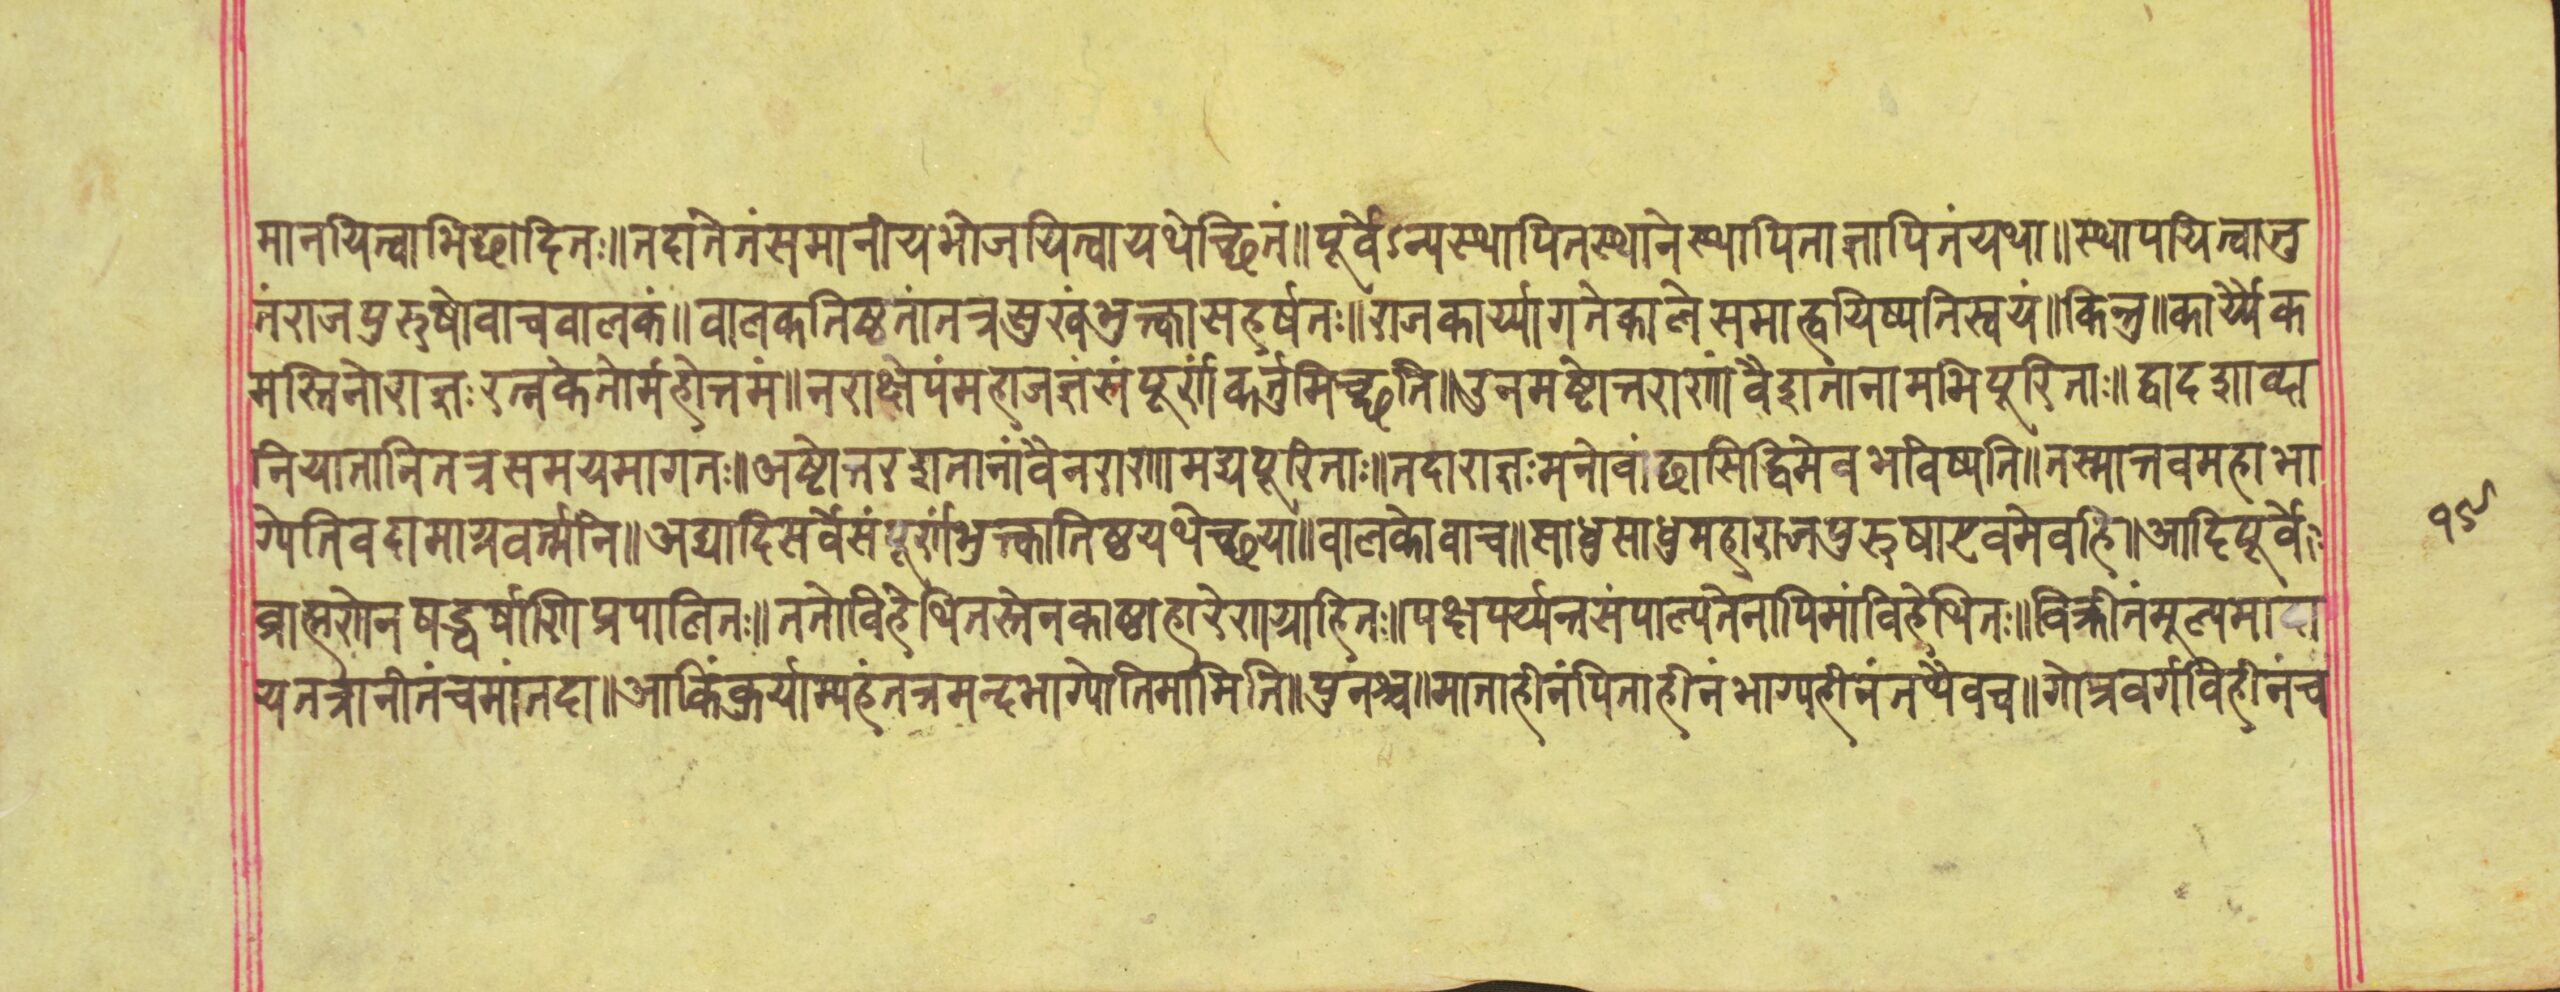 मानयित्वाभिछादितः॥तदातेतंसमानीयभोजयित्वायथेच्छितं॥पूर्वेऽन्यस्थापितस्थानेस्थापिताज्ञापितंयथा॥स्थापयित्वातु
तंराजपुरुषोवाचवालकं॥वालकतिष्ठतांतत्रसुखंभुक्त्वासहर्षतः॥राजकार्य्यागतेकालेसमाह्वयिष्यतिस्वयं॥किन्तु॥कार्य्यैक
मस्तिनोराज्ञःरत्नकेतोर्महोत्तमं॥नराक्षेपंमहाजज्ञंसंपूर्णंकर्तुमिच्छति॥उनमष्टोत्तराणांवैशतानामभिपूरिताः॥द्वादशाव्दा
नियातानितत्रसमयमागतः॥अष्टोत्तरशतानांवैनराणामद्यपूरिताः॥तदाराज्ञःमनोवांछासिद्धिमेवभविष्यति॥तस्मात्तवमहाभा
ग्येतिवदामाग्रवर्त्मनि॥अद्यादिसर्वेसंपूर्णंभुक्त्वातिष्ठयथेच्छया॥वालकोवाच॥साधुसाधुमहाराजपुरुषाएवमेवहि॥आदिपूर्वे
व्राह्मणेनषड्वर्षाणिप्रपालितः॥ततोविहेथितस्तेनकाष्ठाहारेणग्राहितः॥पक्षपर्य्यन्तसंपाल्यतेनापिमांविहेथितः॥विक्रीतंमूल्यमादा
यतत्रानीतंचमांतदा॥आकिंकुर्याम्यहंतत्रमन्दभाग्योतिमामिति॥पुनश्च॥माताहीनंपिताहीनंभाग्यहीनंतथैवच॥गोत्रवर्गविहीनंच
१९